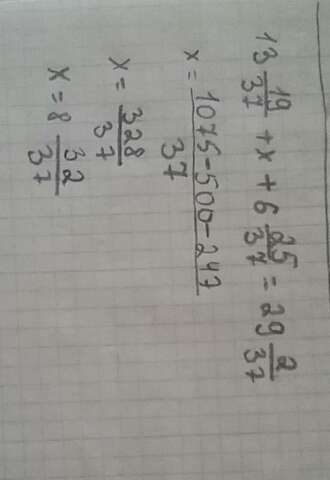 13 19/37 + x + 6 25/37 = 29 2/37
x = 1075-500-247/37
x = 328/37
x = 8 32/37